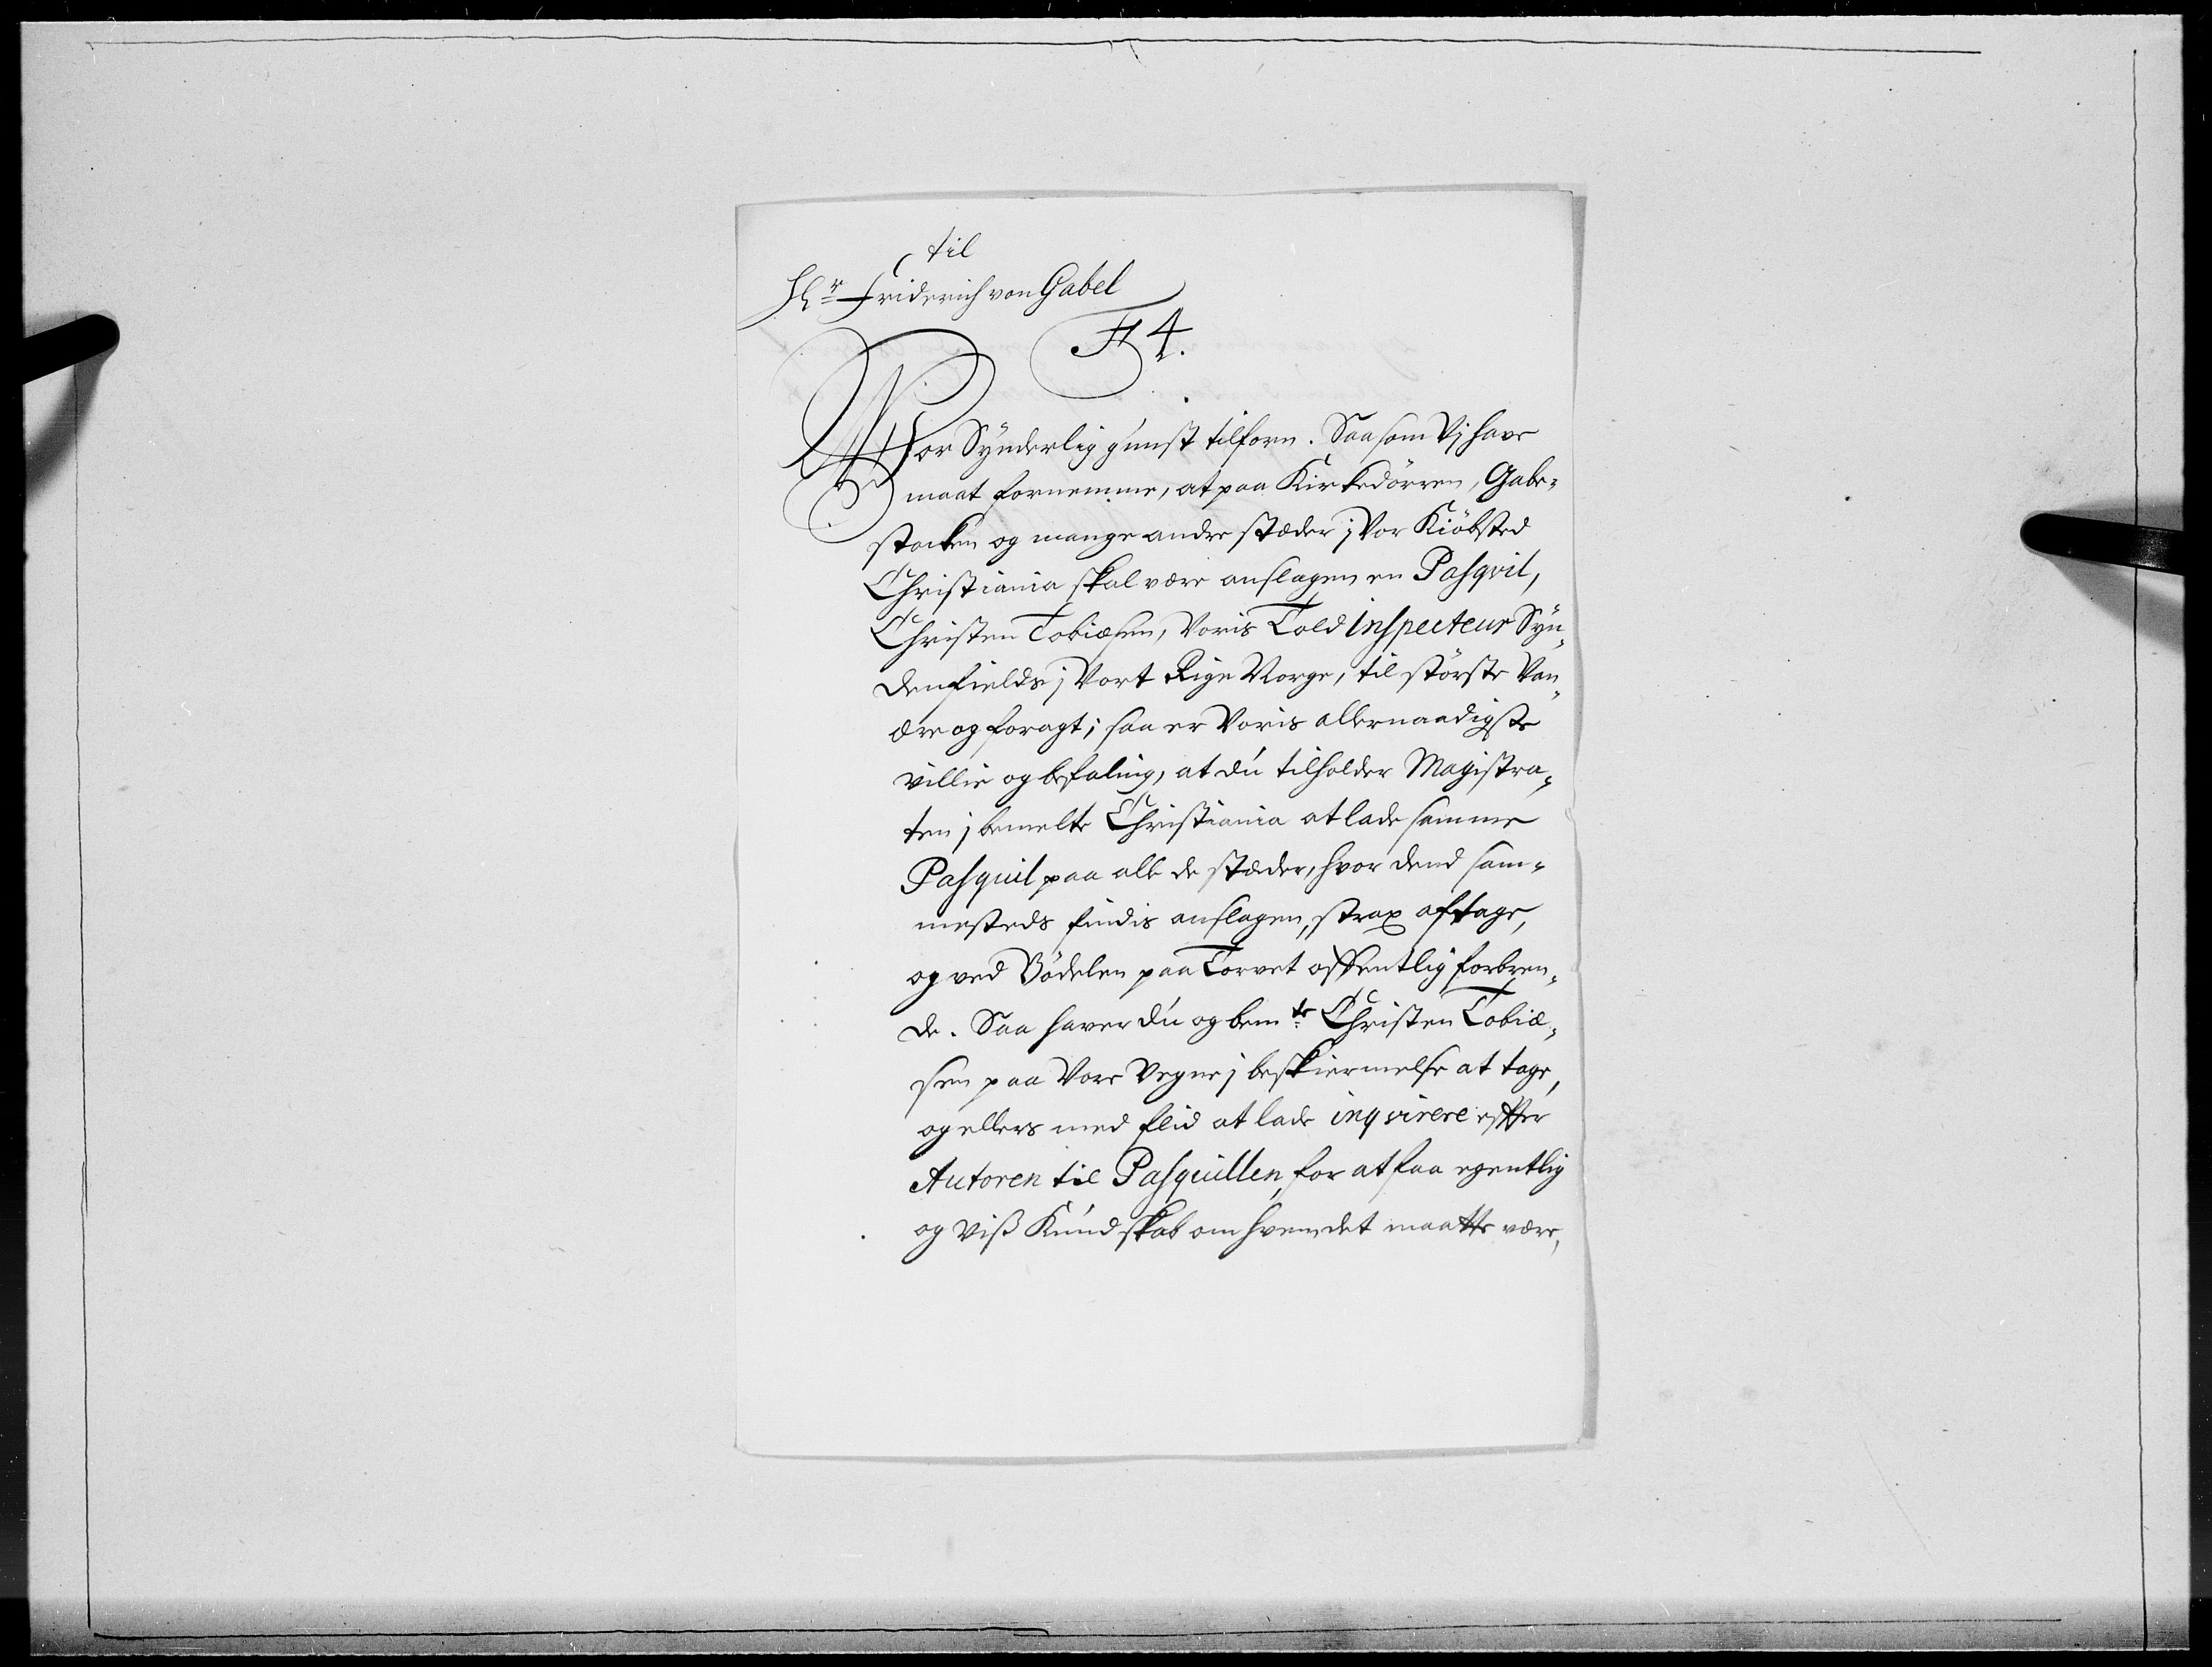 til
Hr Friderich von Gabel
F4.
Vor Synderlig gunst tilforn. Saasom Vj have
maat fornemme, at paa Kirkedörren, Gabe-
stocken og mange andre stæder j Vor Kiöbsted
Christiania skal være anslagen en Pasqvil,
Christen Tobiæsen, Voris Told Inspecteur Syn-
denfields j Vort Rige Norge, til störste Van-
ære og foragt; saa er Voris allernaadigste
villie og befaling, at du tilholder Magistra-
ten j bemelte Christiania at lade samme
Pasquil paa alle de stæder, hvor dend sam-
mesteds findis anslagen, strax aftage,
og ved Bödelen paa Torvet offentlig forbren-
de. Saa haver du og bemte Christen Tobiæ-
sen paa Vore Vegne j beskiermelse at tage,
og ellers med flid at lade inqvirere effter
Autoren til Pasquillen, for at faa egentlig
og viß Kundskab om hvem det maatte være,